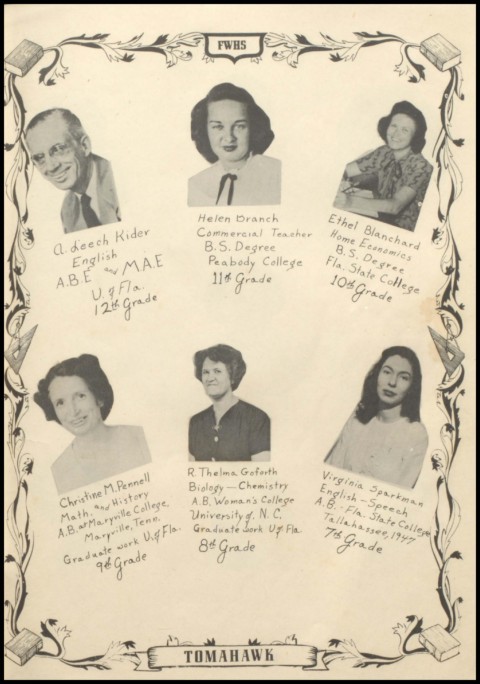 FWHS
A. Leech Kider
English
A.B.E and M.A.E
U. of Fla.
12th Grade
Helen Branch
Commercial Teacher
B.S. Degree
Peabody College
11th Grade
Ethel Blanchard
Home Economics
B.S. Degree
Fla. State College
10th Grade
Christine M. Pennell
Math. and History
A.B. at Maryville College,
Maryville, Tenn.
Graduate work U. of Fla.
9th Grade
R. Thelma Goforth
Biology — Chemistry
A.B. Woman's College
University of N.C.
Graduate work U of Fla
8th Grade
Virginia Sparkman
English - Speech
A.B. - Fla. State College
Tallahassee, 1947
7th Grade
TOMAHAWK